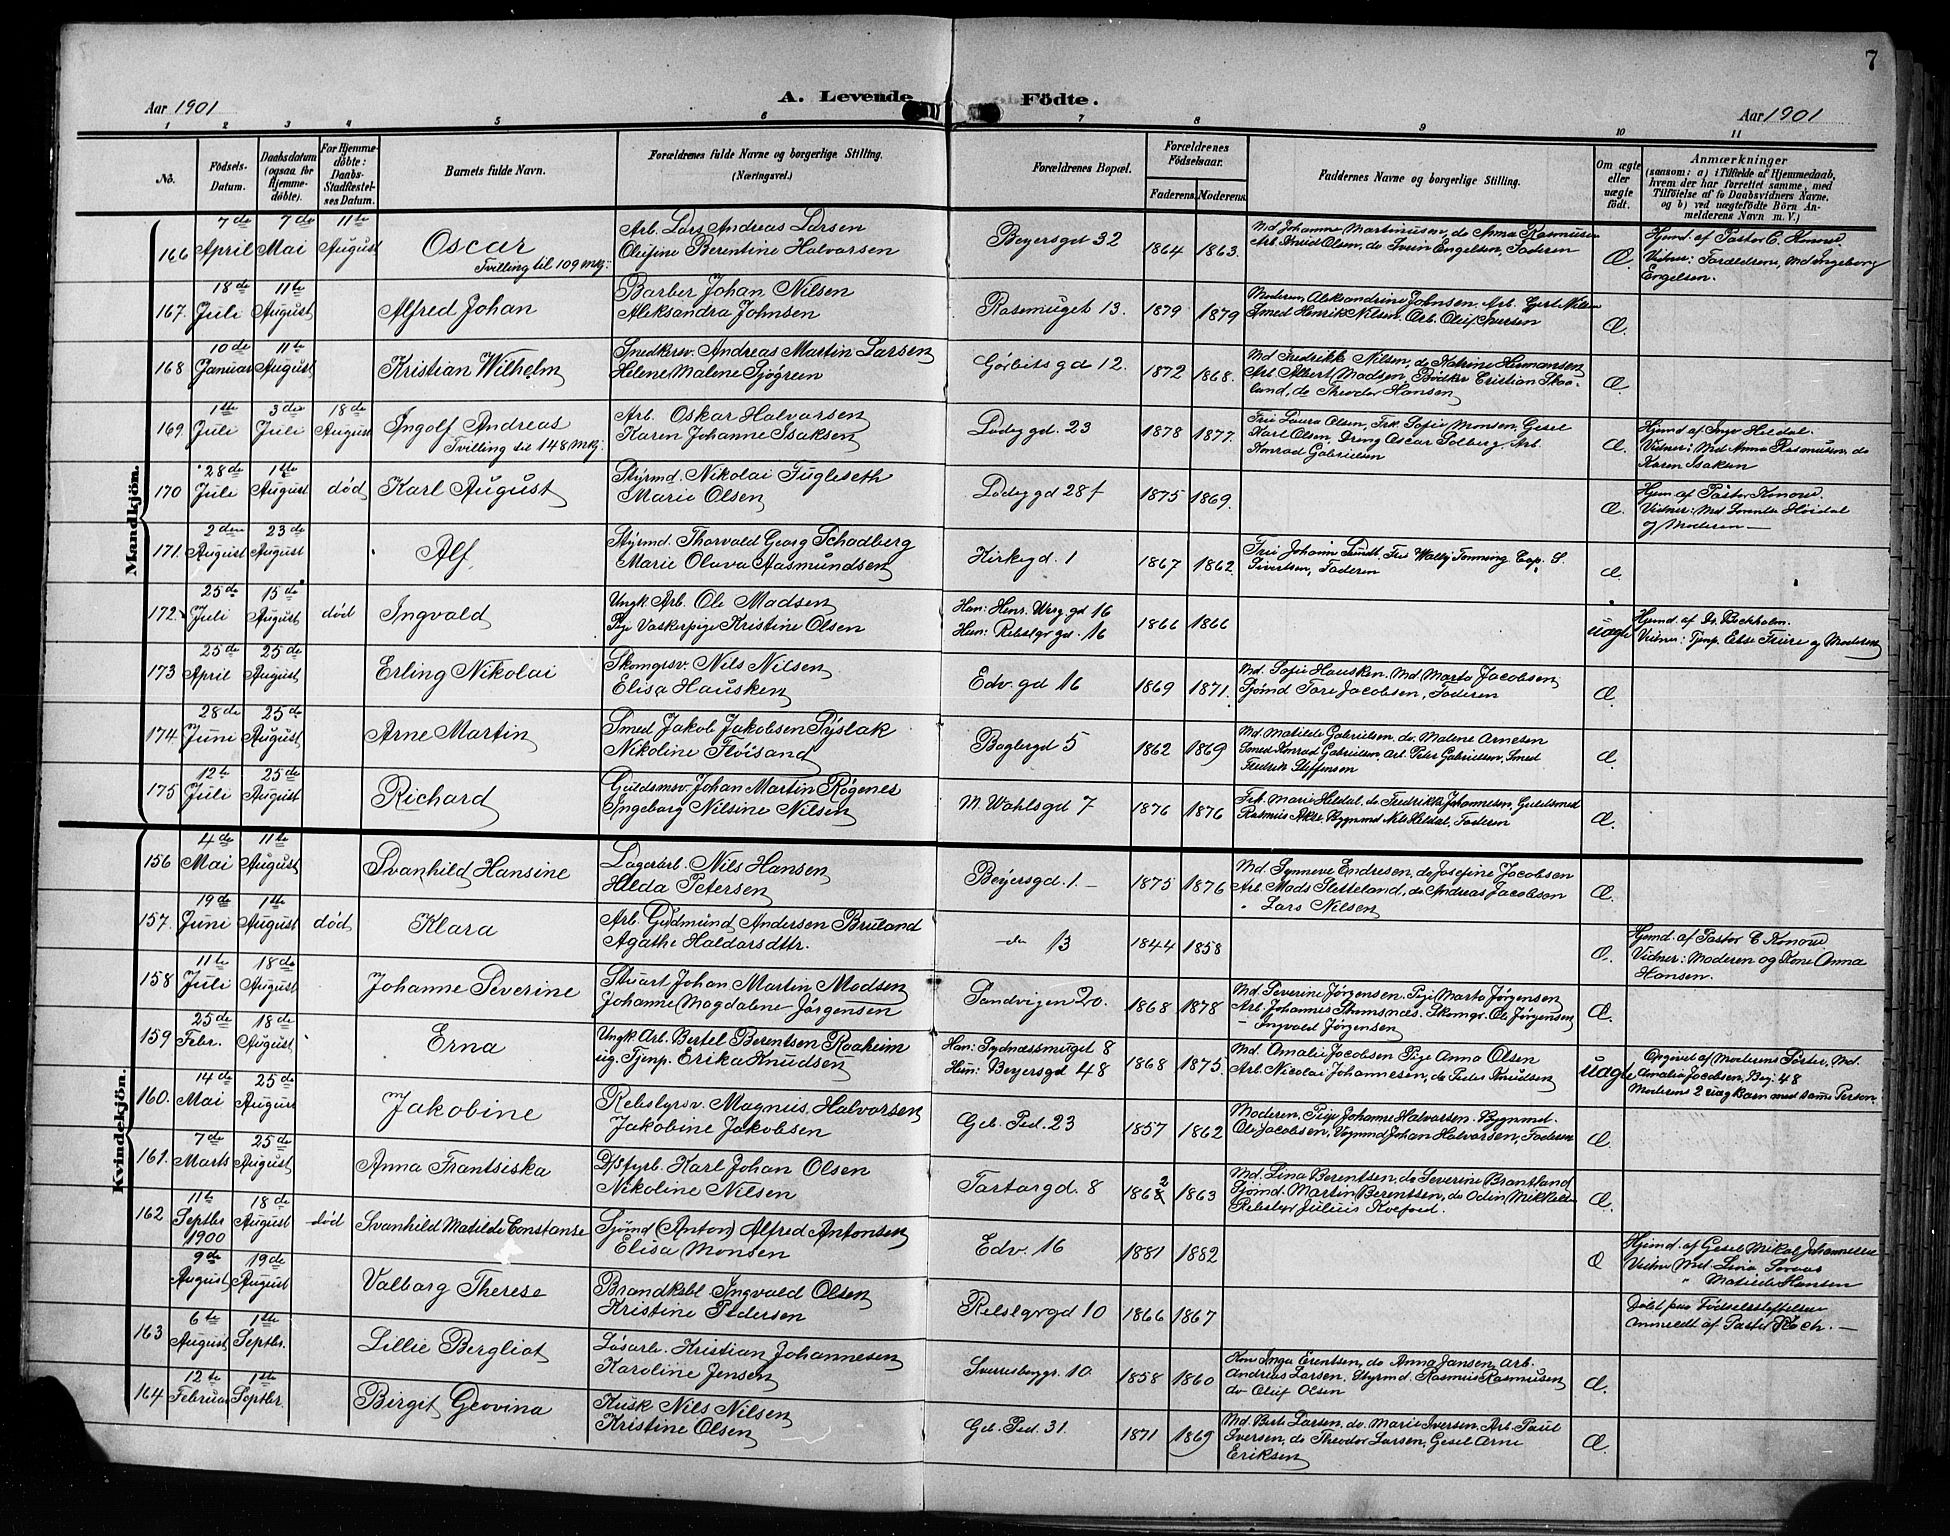 7
Aar 1901
A. Levende
Födte.
Aar 1901
1 2 3 4 5 6 7 8 9 10 11
No.
Födsels-
Datum.
Daabsdatum
(ogsaa for
Hjemme-
döbte).
For Hjemme-
döbte:
Daabs-
Stadfæstel-
ses Datum.
Barnets fulde Navn.
Forældrenes fulde Navne og borgerlige Stilling.
(Næringsvei.)
Forældrenes Bopæl.
Forældrenes
Födselsaar.
Faderens. Moderens.
Faddernes Navne og borgerlige Stilling.
Om ægte
eller
uægte
födt.
Anmærkninger
(saasom: a) i Tilfælde af Hjemmedaab,
hvem der har forrettet samme, med
Tilföielse af to Daabsvidners Navne.
og b) ved uægtefödte Börn An-
melderens Navn m. V.)
Mandkjön.
166 7de April 7de Mai 11te August Oscar
Tvilling til 109 mkj:
Arb. Lars Andreas Larsen
Olufine Berentine Halvarsen
Beyersgd 32 1864 1863.
Md Johanne Martinusen, do Anna Rasmusen
Arb. Knud Olsen, do Svein Engelsen, Faderen
Æ.
Hjemd. af Pastor C. Konow.
Vidner: Forældrene, Md Ingeborg
Engelsen.
167. 18de Juli 11te August Alfred Johan
Barber Johan Nilsen
Aleksandra Johnsen
Rosemuget 13. 1879 1879
Moderen, Aleksandrine Johnsen, Arb. Gert Nilsen
Smed Henrik Nilsen, Arb. Oluf Iversen
Æ.
168 10de Januar 11te August Kristian Wilhelm
Snedkersv. Andreas Martin Larsen
Helene Malene Sjøgreen
Gørbitsgd 12. 1872 1868.
Md Fredrikk Nilsen, do Katrine Hermansen
Arb Albert Madsen, Bødker Cristian Skaa-
land, do Theodor Hansen
Æ
169. 1ste Juli 3die Juli 18de August Ingolf Andreas
Tvilling til 148 mkj.
Arb. Oskar Halvarsen
Karen Johanne Isaksen
Lodegd. 23 1878 1877.
Frü Laura Olsen, Frk. Sofie Monsen, Gesel
Karl Olsen, Dreng Oscar Solberg, Arb.
Konrad Gabrielsen
Æ.
Hjemd af Heldal.
Vidner: Md Anna Rasmusen, do
Karen Isaksen
170 28de Juli 1ste August død Karl August
Styrmd. Nikolai Fugleseth
Marie Olsen
Lodegd 28f 1875 1869.
Æ.
Hjem. af Pastor Konow.
Vidner: Md Lorentse Høidal
og Moderen —
171. 2den August 23de August Alf
Styrmd. Thorvald Georg Schodberg
Marie Olava Aasmundsen
Kirkegd. 1 1867 1862.
Frü Johanne Sundt, Frü Wally Tonning Cap. S.
Sivertsen, Faderen
Æ.
172. 25de Juli 15de August død Ingvald
Ungk. Arb. Ole Madsen
Pige Vaskerpige Kristine Olsen
Han: Henr. Werg. gd 16
Hun: Rebslgr gd. 16
1866 1866
uægte
Hjemd. af Dr. Bockholm.
Vidner: Tjenp. Else Friere og Moderen
173 25de April 25de August Erling Nikolai
Skomgrsv. Nils Nilsen
Elisa Hausken
Edv. gd 16 1869 1871.
Md. Sofie Hausken. Md. Marta Jacobsen
Sjømd Tore Jacobsen, Faderen
Æ.
174. 28de Juni 25de August Arne Martin
Smed Jakob Jakobsen Syslak
Nikoline Fløisand
Baglergd 5 1862 1869
Md. Matilde Gabrielsen, do Malene Arnesen
Smed Konrad Gabrielsen, Arb. Peter Gabrielsen, Smed
Fredrik Steffensen
Æ.
175 12te Juli 25de August Richard
Guldsmsv. Johan Martin Røgenes
Ingeborg Nilsine Nilsen
M. Wahlsgd 7 1876 1876
Frk. Marie Heldal, do Fredrikke Johannesen, Guldsmed
Rasmus Akse, Bygnmd Nils Heldal, Faderen
Æ.
Kvindekjön.
156 4de Mai 11te August Svanhild Hansine
Lagerarb. Nils Hansen
Hilda Petersen
Beyersgd. 1 — 1875 1876
Md. Synneve Endresen, do Josefine Jacobson
Arb. Mads Sletteland, do Andreas Jacobson
" Lars Nilsen
Æ.
157. 19de Juni 1ste August død Klara
Arb. Gudmund Andersen Bruland
Agathe Haldorsdttr.
— do 13 1844 1858
Æ.
Hjemd. af Pastor C Konow
Vidner: Moderen og Kone Anna
Hansen.
158 11te Juli 18de August Johanne Severine
Stuart Johan Martin Madsen
Johanne Magdalene Jørgensen
Sandvigen 20. 1868 1878
Md. Severine Jørgensen. Pige Marta Jørgensen
Arb. Johannis Stemsnæs. Skomgr. Ole Jørgensen
— Ingvald Jørgensen
Æ.
159 25de Febr. 18de August Erna
Ungk. Arb. Bertel Berentsen Raaheim
ug. Tjenp. Erika Knudsen
Han: Sydnæssmuget 8
Hun: Beyersgd 48
1868 1875.
Md. Amalie Jacobsen Pige Anna Olsen
Arb. Nicolai Johannesen, do Peder Knudsen
uægte
Opgivet af Moderens Søster, Md.
Amalia Jacobsen, Bey. 48
Moderens 2 uæg Barn med samme Person
160. 14de Mai 25de August Jakobine
Rebslgrsv. Magnus Halvorsen
Jakobine Jakobsen
Geb. Ped. 23 1857 1862
Moderen, Pige Johanne Halvarsen. Bygnmd.
Ole Jacobsen, Vognmd Johan Halvorsen, Faderen
Æ
161. 7de Marts 25de August Anna Frantsiska
Dsfyrb. Karl Johan Olsen
Nikoline Nilsen
Tartargd. 8 1862 1863
Md. Lina Berentsen, do Severine Brantland
Sjømd. Martin Berentsen, do Odin Mikkelsen
Rebslgr Julius Koefoed.
Æ.
162 11te Septbr 1900 18de August død Svanhild Matilde Constanse
Sjømd (Anton) Alfred Antonsen
Elisa Monsen
Edv. 16 1881 1882
Æ
Hjemd. af Gesel Mikal Johannesen
Vidner Md. Lina Soraas
" Matilde Hansen
9de August 19de August Valborg Therese
Brandkstbl Ingvald Olsen
Kristine Pedersen
Rebslgrgd 10 1866 1867
Døbt paa Fødselsstiftelsen
Anmeldt af Pastor Koch. —
163 6te August 1ste Septbr. Lillie Bergliot
Løsarb. Kristian Johannesen
Karoline Jensen
Sverresborggr. 10 1858 1860
Kone Inga Erentsen, do Anna Jansen, Arb.
Andreas Larsen, Styrmd. Rasmus Rasmusen
do Oluf Olsen
Æ.
164 12te Februar 1ste Septbr. Birgit Geovina
Kusk Nils Nilsen
Kristine Olsen
Geb. Ped. 31. 1871 1869
Md. Berte Larsen, do Marie Iversen, Arb. Paul
Iversen, do Theodor Larsen, Gesel Arne
Eriksen
Æ.